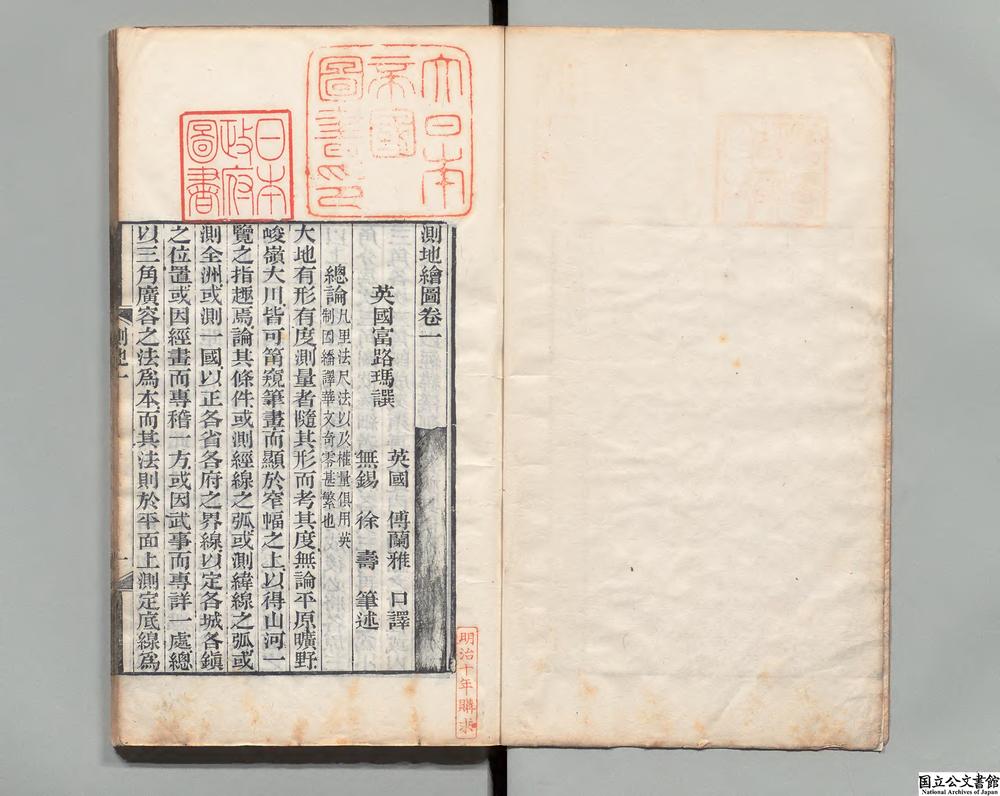 大日本
帝國
圖書印
日本
政府
圖書
測地繪圖卷一
英國 傅蘭雅 口譯
英國富路瑪譔
無錫 徐 壽 筆述
總論凡里法尺法以及權量俱用英
制因繙譯華文奇零甚繁也
大地有形有度測量者隨其形而考其度無論平原曠野
峻嶺大川皆可筩窺筆畫而顯於窄幅之上以得山河一
覽之指趣焉論其條件或測經線之弧或測緯線之弧或
測全洲或測一國以正各省各府之界線以定各城各鎭
之位置或因經畫而專稽一方或因武事而專詳一處總
以三角廣容之法爲本而其法則於平面上測定底線爲
測地一
一
明治十年購求
国立公文書館
National Archives of Japan